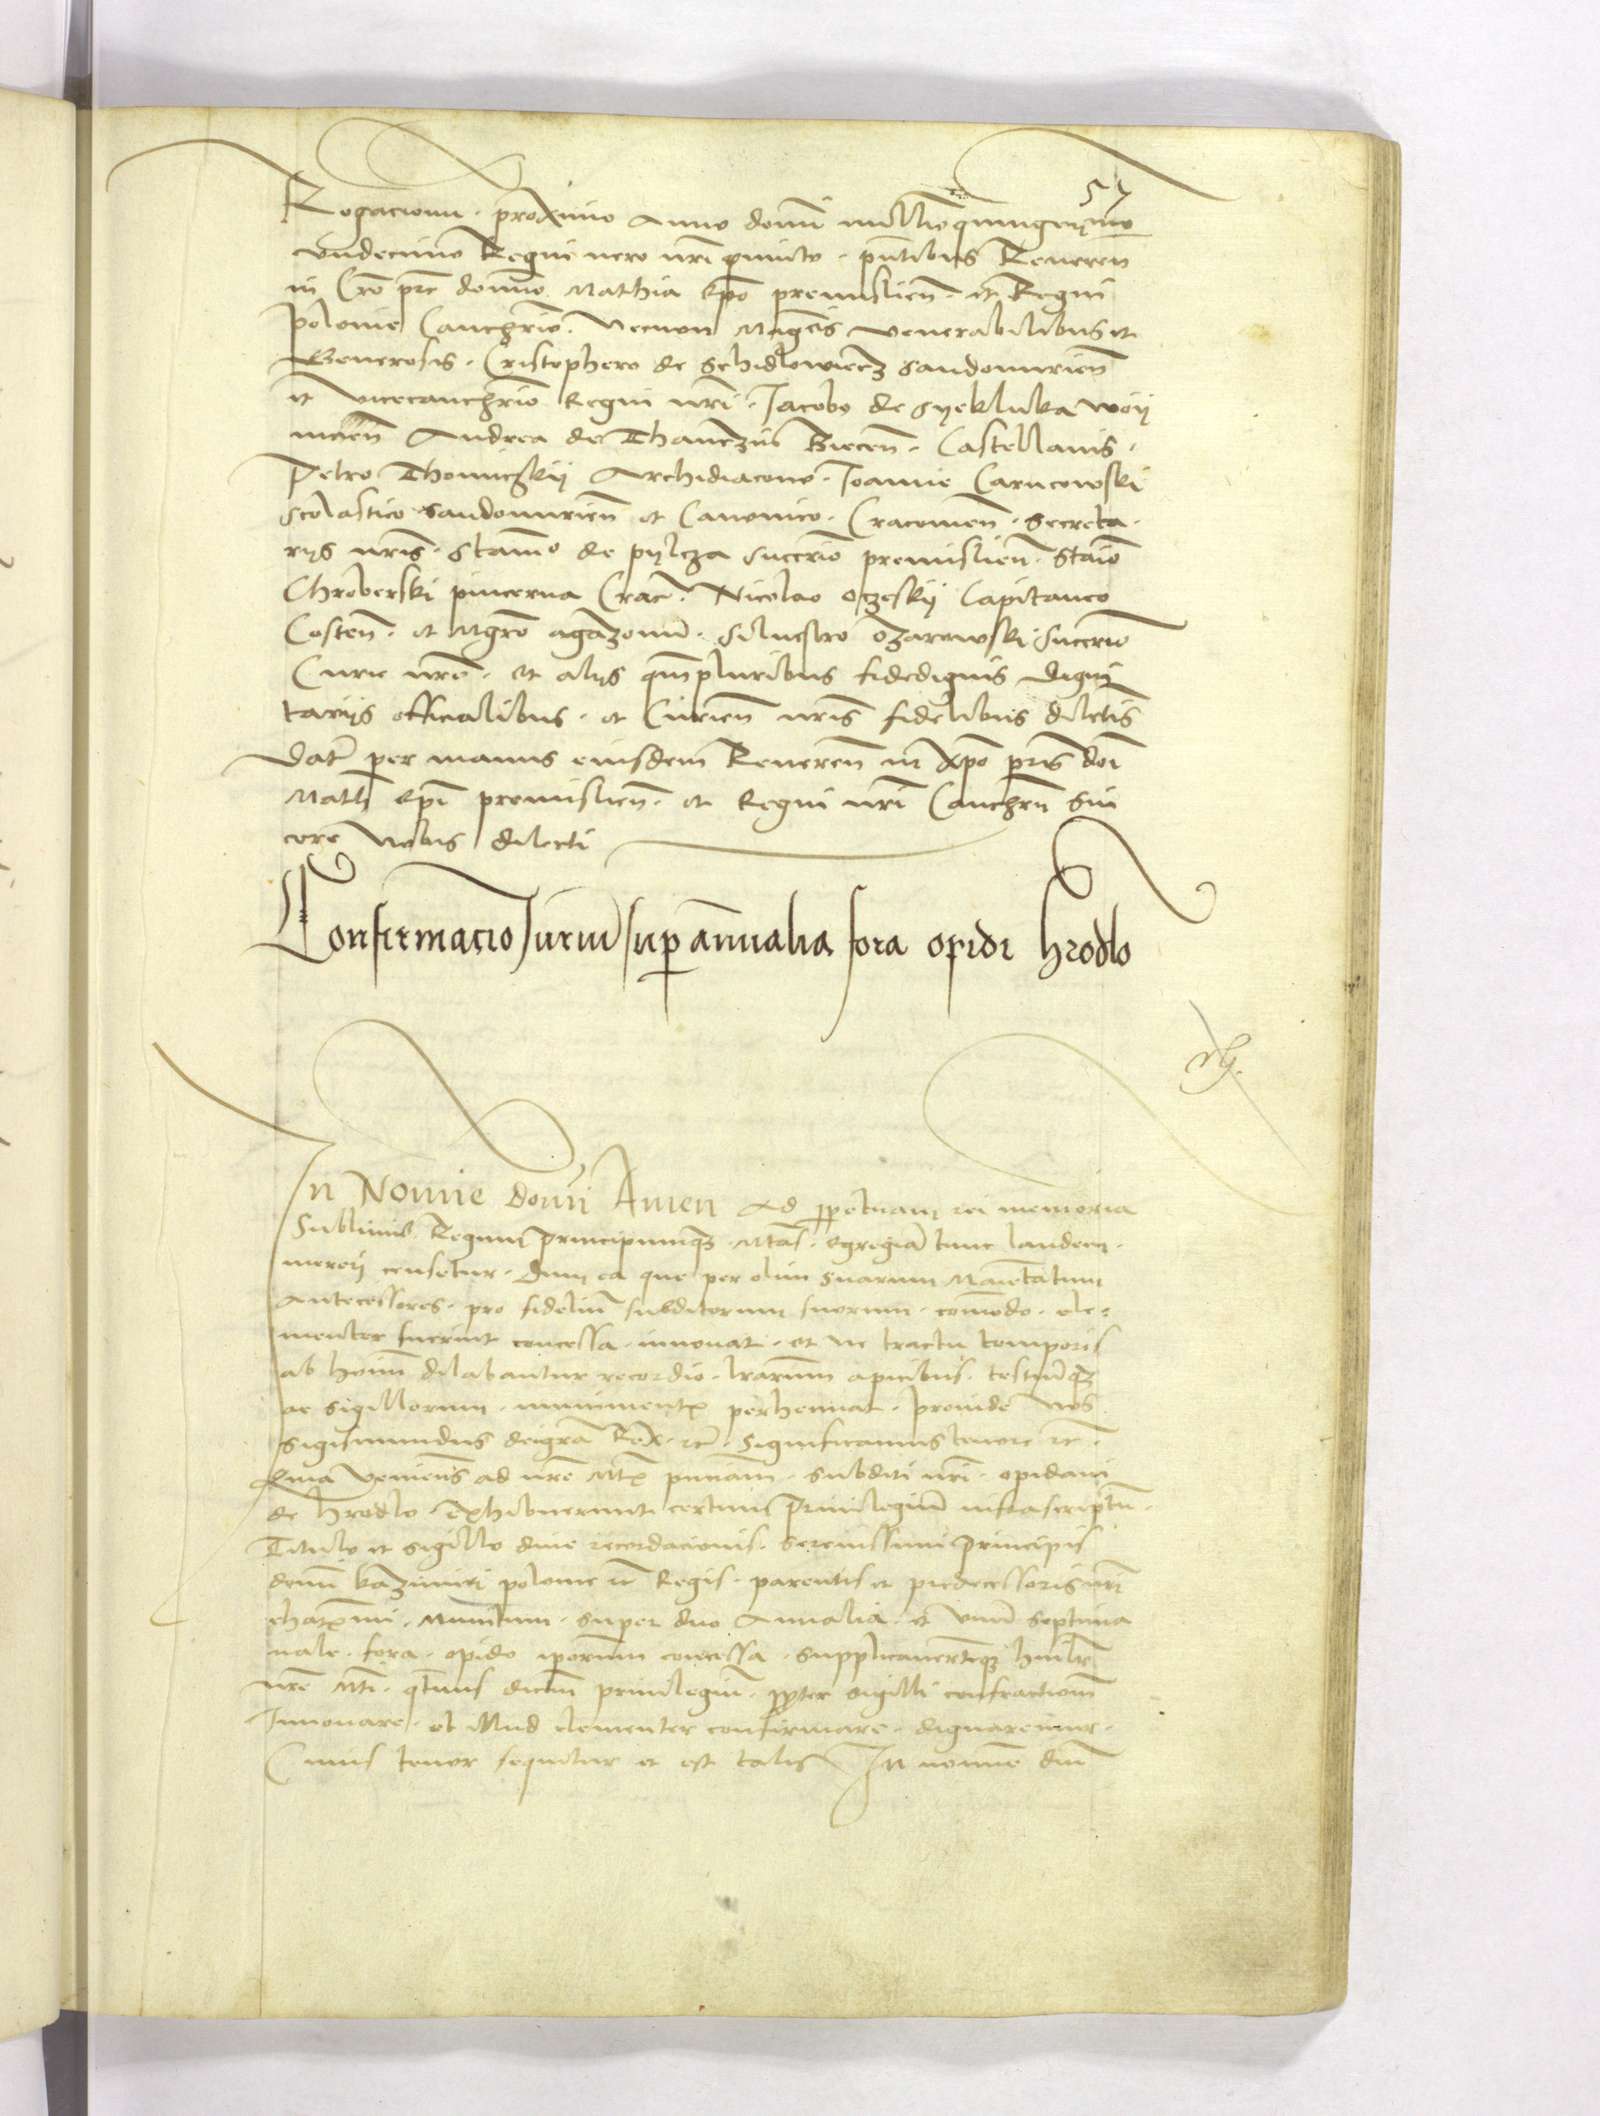 57
Rogacionu proximo Anno domi millioquingeno
undecimo Regni vero nri quinto pntibus Reveren
in Cro pre domno Mathia Epo premislien et Regni
polonie Canchrio Necnon Mageis venerabilibus et
Generosis Cristophero de Schidlowiecz Sandomirien
et vicecanchrio Regni nri Jacobo de Syekluka Woy
nicien Andrea de Thanczin Biecen Castellanis
Petro Thomiczkij Archidiacono Joanne Carncowski
Scolastico Sandomirien et Canonico Cracovien Secreta
rys nris Stano de pylcza Succrio premislien Staio
Chroberski pincerna Crac Nicolao oczeskij Capitaneo
Costen et Mgro agazonu Silvestro Ozarowski Succrio
Curie nre et alys qmpluribus fidedignis digni
tarys officialibus et Curien nris fidelibus diletis
Dat per manus eiusdem Reveren in Xpo pris doi
Math Epi premislien et Regni nri Canchrii Sin
cere Nobis dilecti
Confirmacio Juriu sup annualia fora opidi hrodlo
In Nomie Domi Amen Ad ppetuam rei memoria
Sublimis Regum Principumque Mtas egregia tunc laudem
mereri censetur dum ea que per olim Suarum Maiestatum
Antecessores pro fideliu subditorum suorum comodo cle
menter fuerint concessa innovat et ne tractu temporis
ab homi dilabantur recordio lrarum apicibus testiuque
ac sigillorum munimento perhennat proinde Nos
Sigismundus deigra Rex etc Significamus tenore etc
Quia Veniens ad nre Mtis pnciam Subditi nri opidani
de hrodlo Exhibuerunt certum Privilegium infrascriptu
Titulo et sigillo dive recordacionis Serenissimi Principis
domi kazimiri polonie etc Regis parentis et predecessoris nri
charmi Munitum Super duo Annalia et unu Septima
nale fora opido iporum concessa Supplicaveruntque humile
nre Mti qtenus dictum privilegiu ppter sigilli confractionem
Innovare et illud clementer confirmare dignaremur
Cuius tenor sequitur et est talis In nomine dni